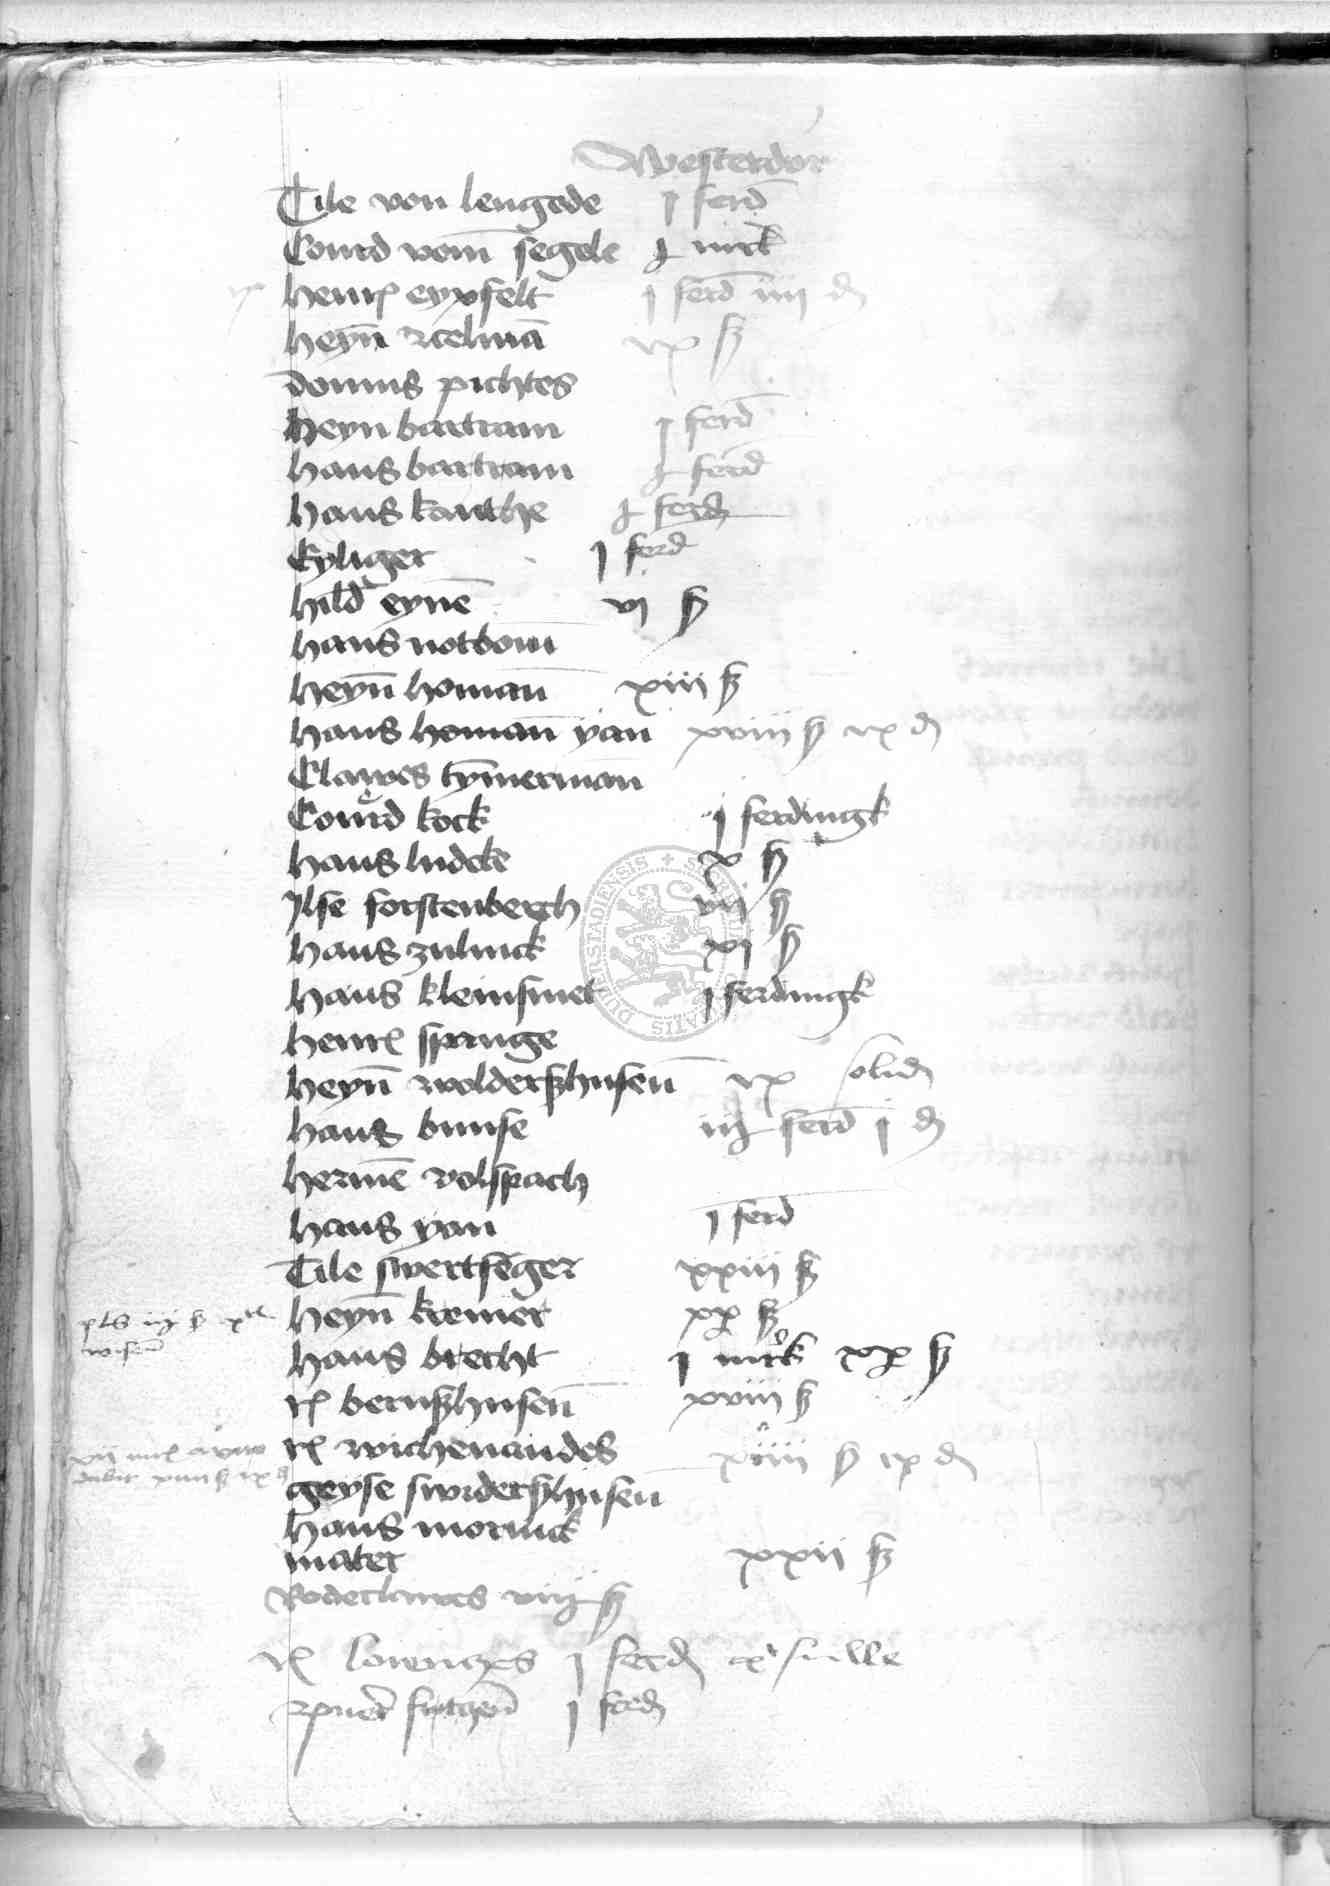 Westerdor
Tile von lengede j ferd
Courd vom segele j mrk
henr eyxfelt j ferd iiii d
heyn ix ß
domus pichtes
heyn bartram j ferd
hans bartram j ferd
hans kanthe j ferd
Eyliger j ferd
hild eyne vj ß
hans notbom
heyn homan xiiii ß
hans homan yan xviii ß ix d
Clawes tymerman
Courd kock j ferdingk
hans ludeke x ß
Ilse forstenberch vij ß
hans zulinck xj ß
hans kleinsmet j ferdingk
henr sprunge
heyn wolderßhusen ix solid
hans bunse ferd j d
hermen volspach
hans yan j ferd
Tile swertfeger xxiiii ß
heyn kremer xx ß
hans brecht j mrk xx ß
rel bernßhusen xviii ß
rel wichenandes xviiii ß ix d
geyse swiderßhusen
hans morinck
mater xxii ß
Rodeclawes ß
rel lorenczes j ferd
j ferd
SIGILLUM CIVITATIS DUDERSTADIENSIS